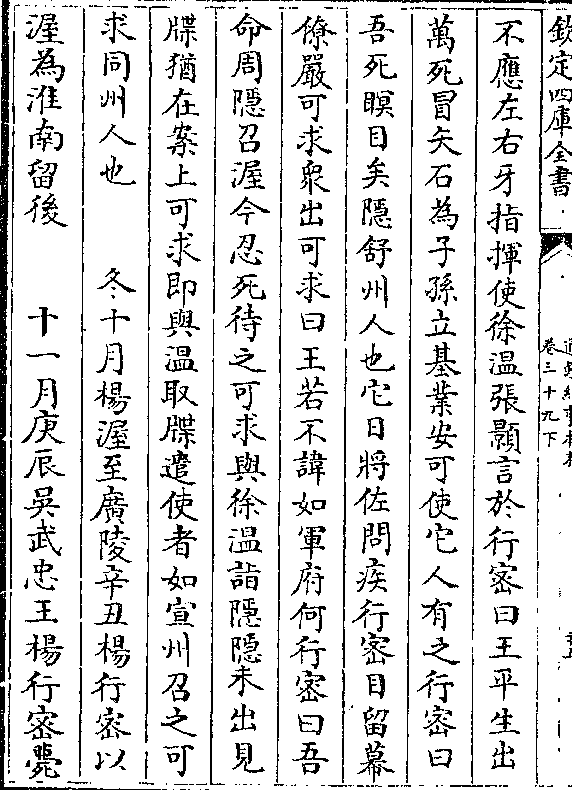 欽定四庫全書
卷三十九下
不應左右牙指揮使徐溫張顥言於行密曰王平生出
萬死冒矢石為子孫立基業安可使它人有之行密曰
吾死瞑目矣隱舒州人也它日將佐問疾行密目留幕
僚嚴可求衆出可求曰王若不諱如軍府何行密曰吾
命周隱召渥今忍死待之可求與徐溫詣隱隱未出見
牒猶在案上可求即與溫取牒遣使者如宣州召之可
求同州人也　　冬十月楊渥至廣陵辛丑楊行密以
渥為淮南留後　　十一月庚辰吳武忠王楊行密薨